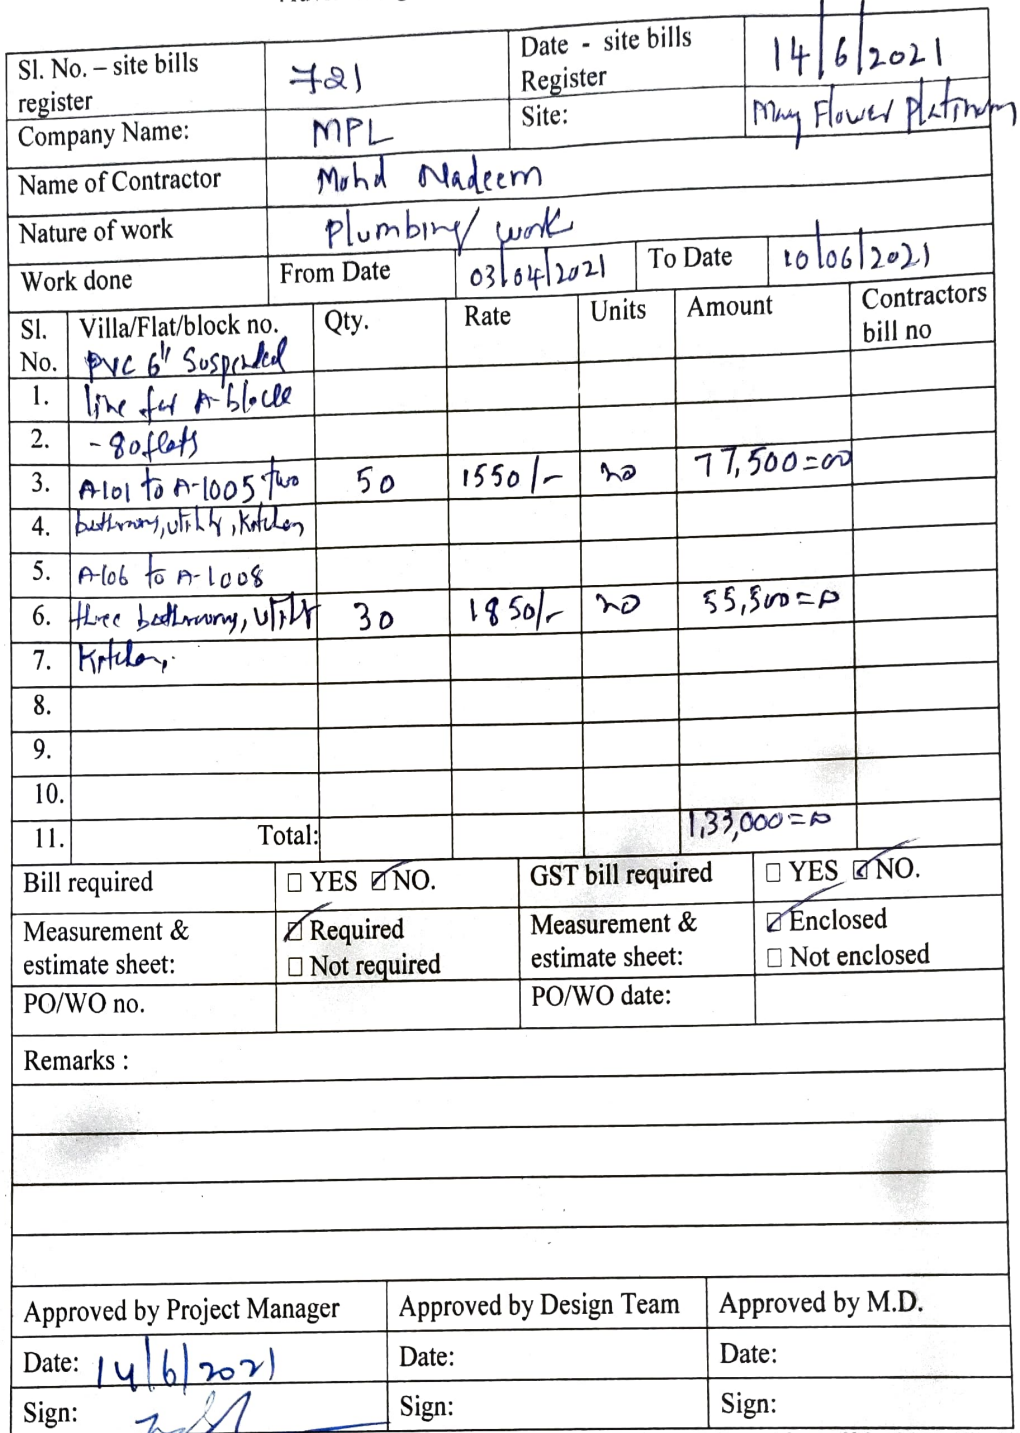 Sl. No. – site bills register 721 Date - site bills Register 14/6/2021
Company Name: MPL Site: May Flower Platinum
Name of Contractor Mohd Nadeem
Nature of work Plumbing work
Work done From Date 03/04/2021 To Date 10/06/2021
Sl. No. Villa/Flat/block no. Qty. Rate Units Amount Contractors bill no
PVC 6" Suspended
1. line for A-block
2. - 80 flats
3. A-101 to A-1005 two 50 1550/- no 77,500=00
4. bathrooms, utility, Kitchen
5. A-106 to A-1008
6. three bathrooms, utility 30 1850/- no 55,500=00
7. Kitchen,
8.
9.
10.
11. Total: 1,33,000=00
Bill required ☐ YES ☑ NO. GST bill required ☐ YES ☑ NO.
Measurement & estimate sheet: ☑ Required ☐ Not required Measurement & estimate sheet: ☑ Enclosed ☐ Not enclosed
PO/WO no. PO/WO date:
Remarks :
Approved by Project Manager Approved by Design Team Approved by M.D.
Date: 14/6/2021 Date: Date:
Sign: Sign: Sign: